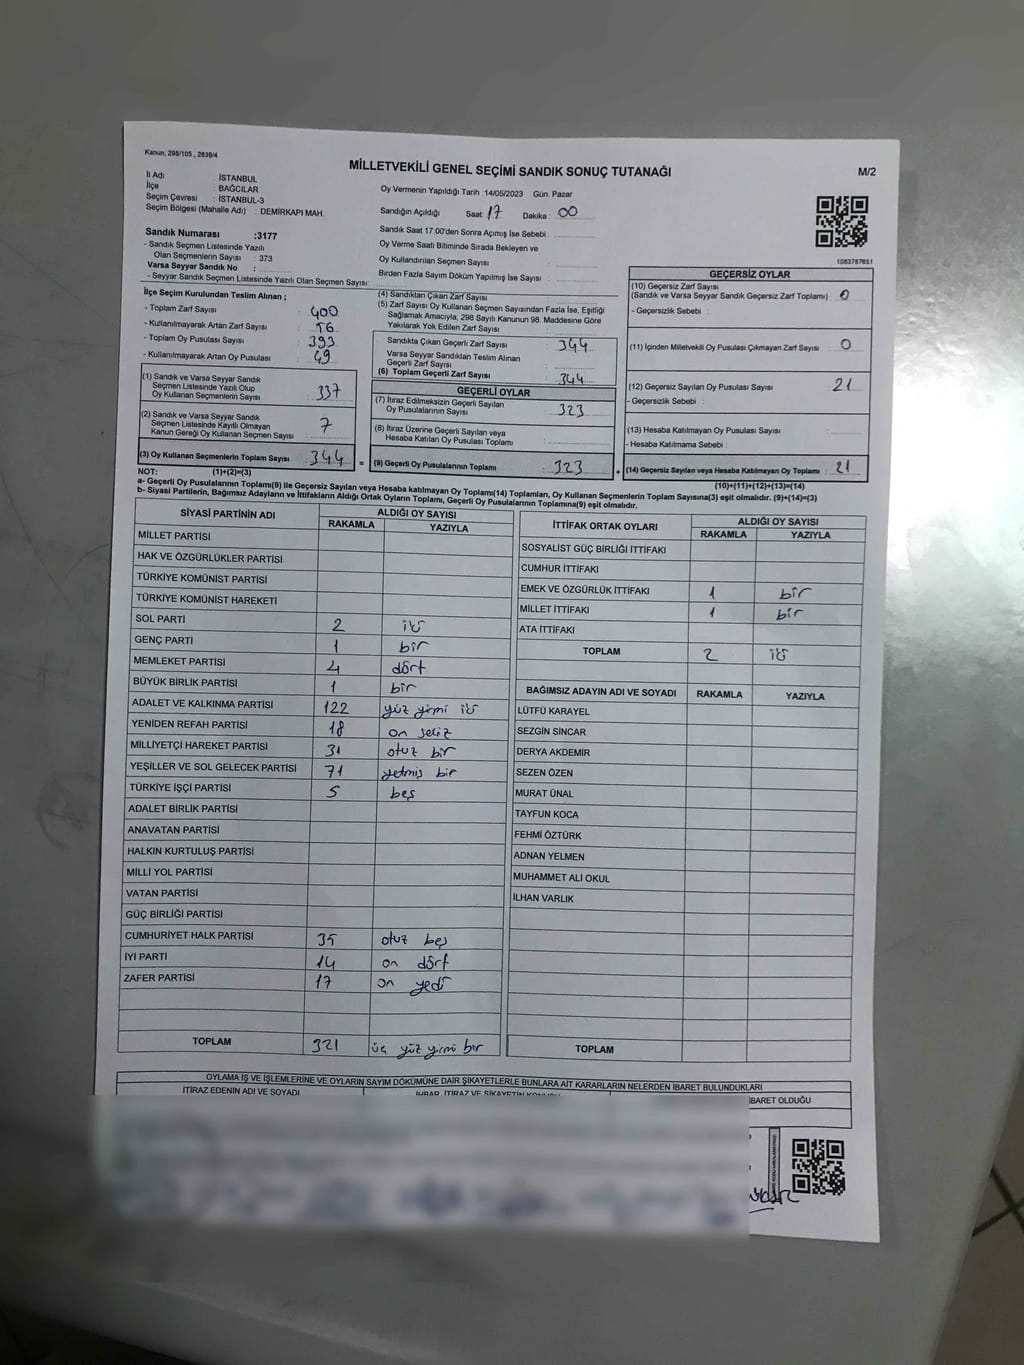 Kanun; 298/105 , 2839/4
MİLLETVEKİLİ GENEL SEÇİMİ SANDIK SONUÇ TUTANAĞI
M/2
İl Adı : İSTANBUL
İlçe : BAĞCILAR
Seçim Çevresi : İSTANBUL-3
Seçim Bölgesi (Mahalle Adı) : DEMİRKAPI MAH.
Oy Vermenin Yapıldığı Tarih :14/05/2023 Gün: Pazar
Sandığın Açıldığı Saat: 17 Dakika : 00
Sandık Saat 17:00'den Sonra Açılmış İse Sebebi :
Oy Verme Saati Bitiminde Sırada Bekleyen ve
Oy Kullandırılan Seçmen Sayısı :
Birden Fazla Sayım Döküm Yapılmış İse Sayısı :
1083787651
Sandık Numarası :3177
- Sandık Seçmen Listesinde Yazılı
Olan Seçmenlerin Sayısı : 373
Varsa Seyyar Sandık No :
- Seyyar Sandık Seçmen Listesinde Yazılı Olan Seçmen Sayısı:
İlçe Seçim Kurulundan Teslim Alınan ;
- Toplam Zarf Sayısı : 400
- Kullanılmayarak Artan Zarf Sayısı :
- Toplam Oy Pusulası Sayısı : 393
- Kullanılmayarak Artan Oy Pusulası : 49
(1) Sandık ve Varsa Seyyar Sandık
Seçmen Listesinde Yazılı Olup
Oy Kullanan Seçmenlerin Sayısı : 337
(2) Sandık ve Varsa Seyyar Sandık
Seçmen Listesinde Kayıtlı Olmayan
Kanun Gereği Oy Kullanan Seçmen Sayısı : 7
(3) Oy Kullanan Seçmenlerin Toplam Sayısı : 344
(1)+(2)=(3)
(4) Sandıktan Çıkan Zarf Sayısı
(5) Zarf Sayısı Oy Kullanan Seçmen Sayısından Fazla İse, Eşitliği
Sağlamak Amacıyla, 298 Sayılı Kanunun 98. Maddesine Göre
Yakılarak Yok Edilen Zarf Sayısı :
Sandıkta Çıkan Geçerli Zarf Sayısı : 344
Varsa Seyyar Sandıktan Teslim Alınan
Geçerli Zarf Sayısı :
(6) Toplam Geçerli Zarf Sayısı : 344
GEÇERLİ OYLAR
(7) İtiraz Edilmeksizin Geçerli Sayılan
Oy Pusulalarının Sayısı : 323
(8) İtiraz Üzerine Geçerli Sayılan veya
Hesaba Katılan Oy Pusulası Toplamı :
= (9) Geçerli Oy Pusulalarının Toplamı : 323 +
GEÇERSİZ OYLAR
(10) Geçersiz Zarf Sayısı
(Sandık ve Varsa Seyyar Sandık Geçersiz Zarf Toplamı) : 0
- Geçersizlik Sebebi :
(11) İçinden Milletvekili Oy Pusulası Çıkmayan Zarf Sayısı : 0
(12) Geçersiz Sayılan Oy Pusulası Sayısı : 21
- Geçersizlik Sebebi :
(13) Hesaba Katılmayan Oy Pusulası Sayısı :
- Hesaba Katılmama Sebebi :
(14) Geçersiz Sayılan veya Hesaba Katılmayan Oy Toplamı : 21
(10)+(11)+(12)+(13)=(14)
NOT:
a- Geçerli Oy Pusulalarının Toplamı(9) ile Geçersiz Sayılan veya Hesaba katılmayan Oy Toplamı(14) Toplamları, Oy Kullanan Seçmenlerin Toplam Sayısına(3) eşit olmalıdır. (9)+(14)=(3)
b- Siyasi Partilerin, Bağımsız Adayların ve İttifakların Aldığı Ortak Oyların Toplamı, Geçerli Oy Pusulalarının Toplamına(9) eşit olmalıdır.
SİYASİ PARTİNİN ADI ALDIĞI OY SAYISI
RAKAMLA YAZIYLA
MİLLET PARTİSİ
HAK VE ÖZGÜRLÜKLER PARTİSİ
TÜRKİYE KOMÜNİST PARTİSİ
TÜRKİYE KOMÜNİST HAREKETİ
SOL PARTİ 2 iki
GENÇ PARTİ 1 bir
MEMLEKET PARTİSİ 4 dört
BÜYÜK BİRLİK PARTİSİ 1 bir
ADALET VE KALKINMA PARTİSİ 122 yüz yirmi iki
YENİDEN REFAH PARTİSİ 18 on sekiz
MİLLİYETÇİ HAREKET PARTİSİ 31 otuz bir
YEŞİLLER VE SOL GELECEK PARTİSİ 71 yetmiş bir
TÜRKİYE İŞÇİ PARTİSİ 5 beş
ADALET BİRLİK PARTİSİ
ANAVATAN PARTİSİ
HALKIN KURTULUŞ PARTİSİ
MİLLİ YOL PARTİSİ
VATAN PARTİSİ
GÜÇ BİRLİĞİ PARTİSİ
CUMHURİYET HALK PARTİSİ 35 otuz beş
İYİ PARTİ 14 on dört
ZAFER PARTİSİ 17 on yedi
TOPLAM 321 üç yüz yirmi bir
İTTİFAK ORTAK OYLARI ALDIĞI OY SAYISI
RAKAMLA YAZIYLA
SOSYALİST GÜÇ BİRLİĞİ İTTİFAKI
CUMHUR İTTİFAKI
EMEK VE ÖZGÜRLÜK İTTİFAKI 1 bir
MİLLET İTTİFAKI 1 bir
ATA İTTİFAKI
TOPLAM 2 iki
BAĞIMSIZ ADAYIN ADI VE SOYADI RAKAMLA YAZIYLA
LÜTFÜ KARAYEL
SEZGİN SİNCAR
DERYA AKDEMİR
SEZEN ÖZEN
MURAT ÜNAL
TAYFUN KOCA
FEHMİ ÖZTÜRK
ADNAN YELMEN
MUHAMMET ALİ OKUL
İLHAN VARLIK
TOPLAM
OYLAMA İŞ VE İŞLEMLERİNE VE OYLARIN SAYIM DÖKÜMÜNE DAİR ŞİKAYETLERLE BUNLARA AİT KARARLARIN NELERDEN İBARET BULUNDUKLARI
İTİRAZ EDENİN ADI VE SOYADI İHBAR, İTİRAZ VE ŞİKAYETİN KONUSU İBARET OLDUĞU